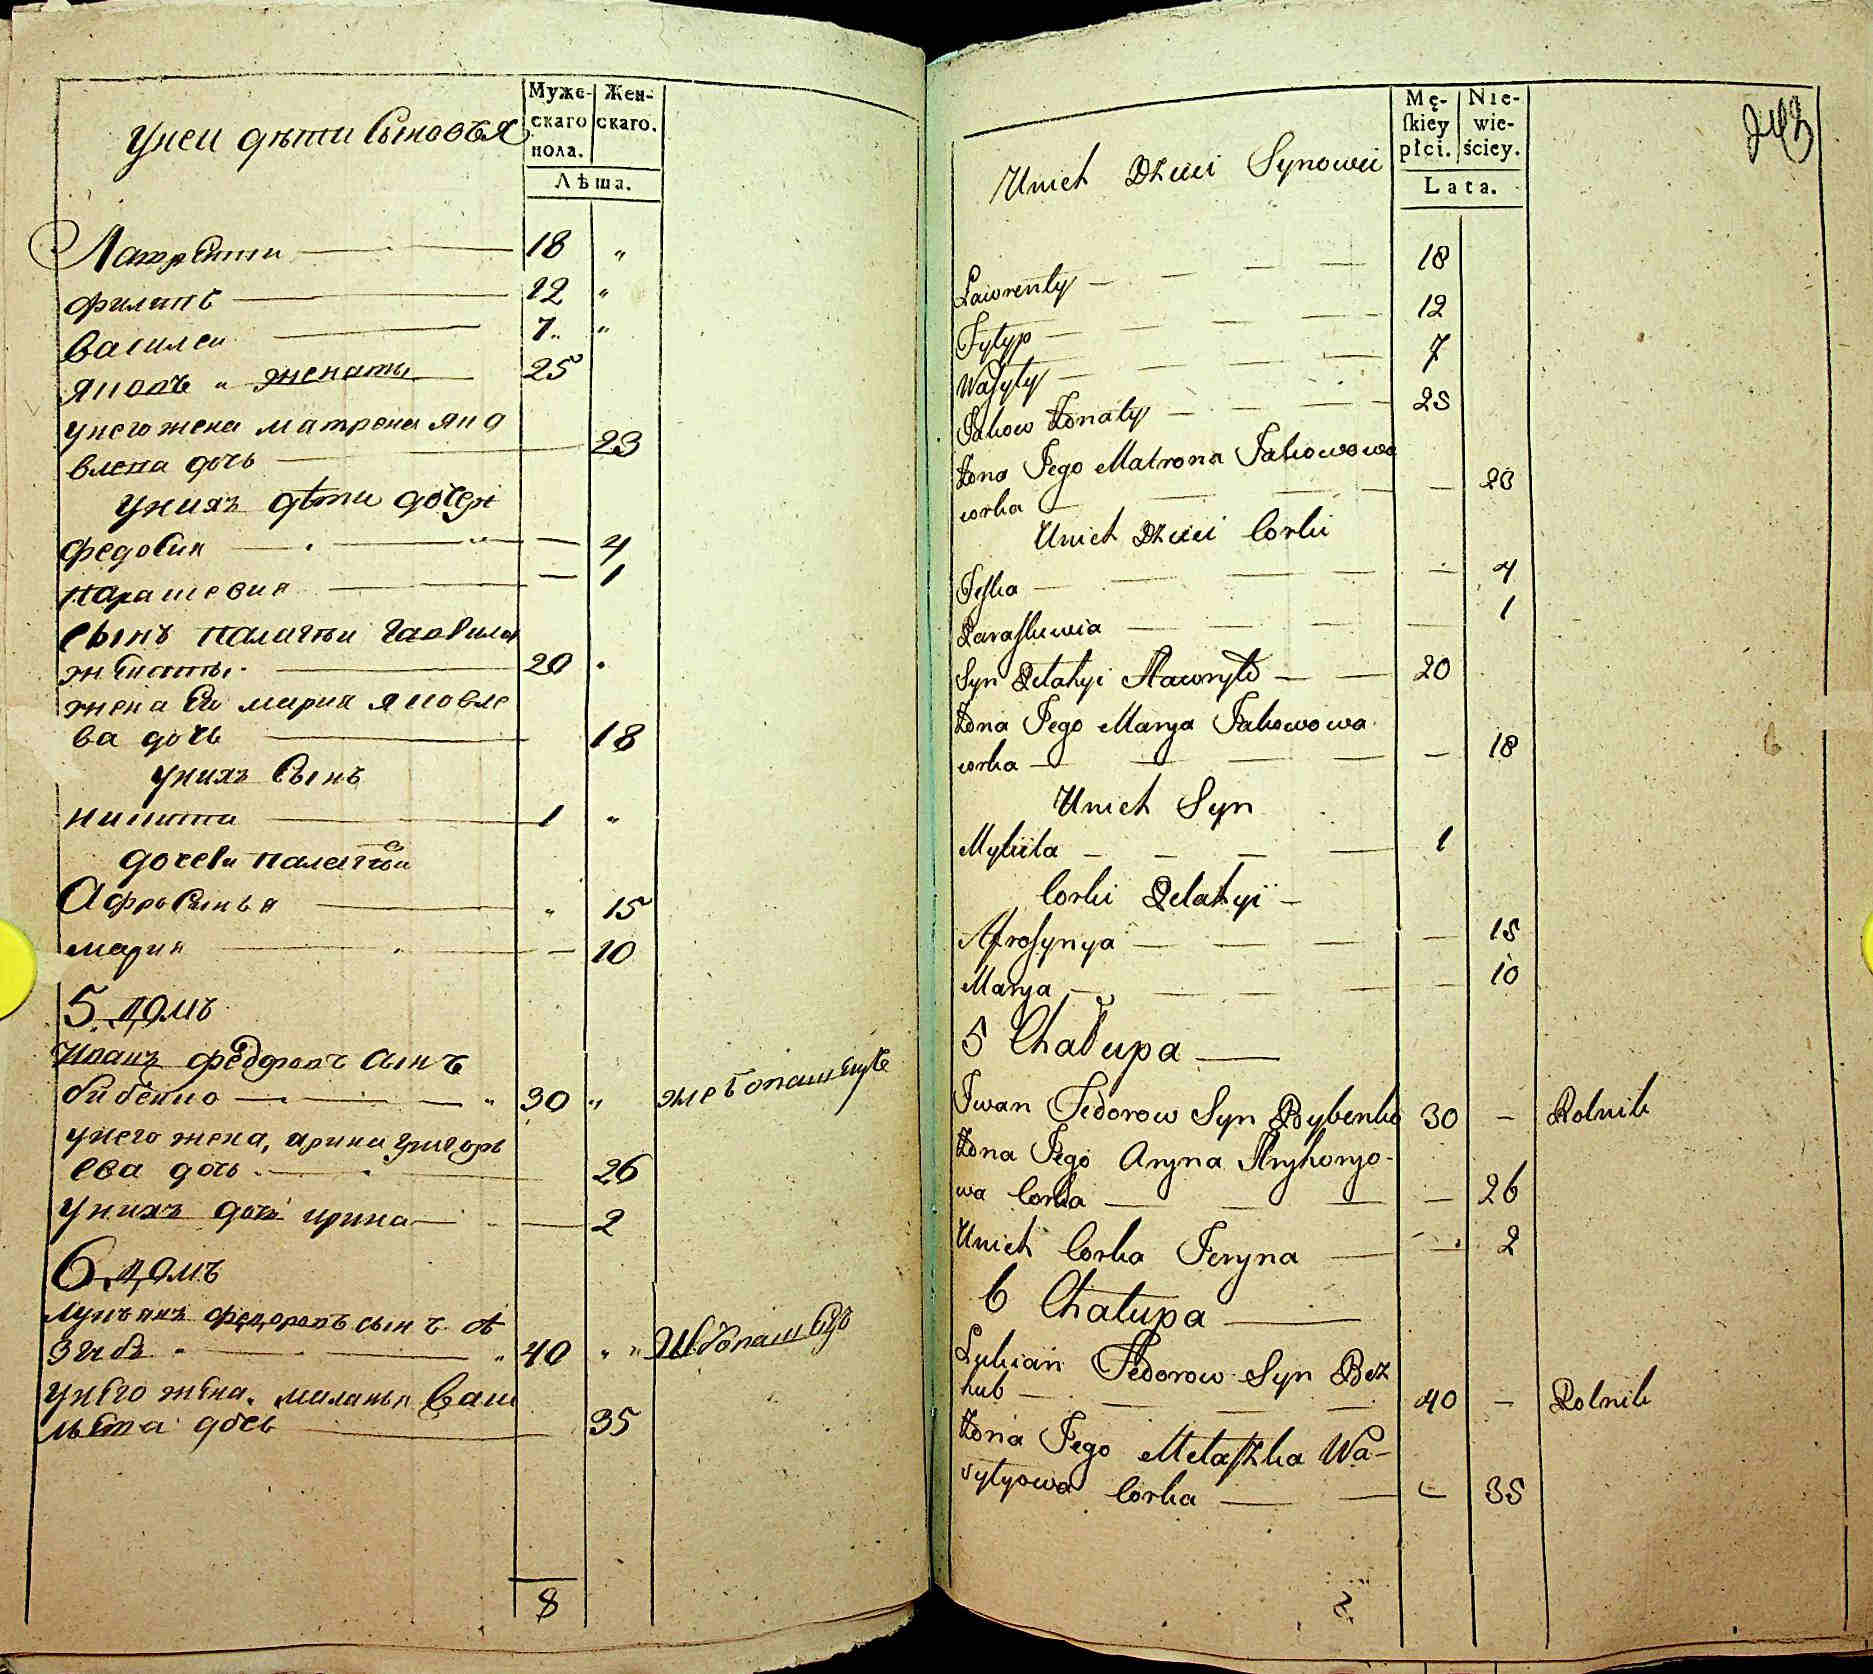 Муже-
скаго
пола.
Жен-
скаго.
Лѣта.
унеи дѣти сыновья
Лаврентии 18 "
филипъ 12 "
василеи 7 "
яковъ " женатъ 25
унего жена матрона яко
влева дочь 23
унихъ дѣти дочери
федосия — 4
парасковия — 1
сынъ палагѣи гаврило
женаты 20
жена Его мария яковле
ва дочь 18
унихъ сынъ
никита 1 "
дочери палагѣи
Афросинья " 15
мария — 10
5 домъ
Иванъ федоровъ сынъ
бибенко " 30 "
унего жена, арина григорь
ева дочь 26
унихъ дочь ирина — 2
6 домъ
лукьянъ федоровъ сынъ бѣ
зубъ " 40 " "
унего жена маланья васи
льева дочь 35
8
Mę-
skiey
płci.
Nie-
wie-
ściey.
Lata.
Unich Dzieci Synowie
Lawrenty 18
Fylyp 12
Wasyly 7
Jakow Żonaty 25
Żona Jego Matrona Jakowowa
corka — 23
Unich Dzieci Corki
Feska — 4
Paraskiewia — 1
Syn Pelahyi Hawryło 20
Żona Jego Marya Jakowowa
corka — 18
Unich Syn
Mykita 1
Corki Pelahyi
Afrosynya — 15
Marya — 10
5 Chałupa
Iwan Fedorow Syn Bybenko 30 — Rolnik
Żona Jego Aryna Hryhoryo-
wa Corka — 26
Unich Corka Jeryna — 2
6 Chałupa
Lukian Fedorow Syn Bez
hub 40 — Rolnik
Żona Jego Melaszka Wa-
sylyowa Corka — 35